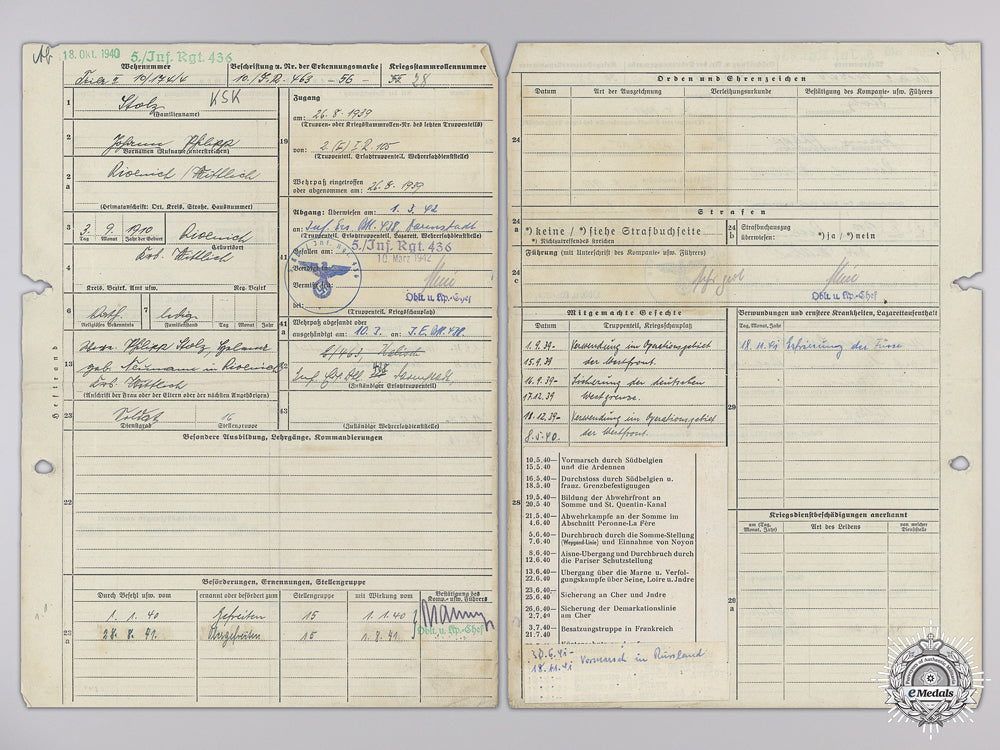 18. Okt. 1940 5./Inf. Rgt. 436
Wehrnummer
Beschriftung u. Nr. der Erkennungsmarke
Kriegsstammrollennummer
19/174/6
10. I.R. 463 - 56 -
28
1
Stolz
KSK
(Familienname)
2
Johann Philipp
Vornamen (Rufname unterstreichen)
2a
/ Wittlich
(Heimatanschrift: Ort, Kreis, Straße, Hausnummer)
3
3. 9. 1910
Tag Monat Jahr der Geburt
Geburtsort
4
Krs. Wittlich
Kreis, Bezirk, Amt usw.
Reg.-Bezirk
6
kath.
7
ledig
Religiöses Bekenntnis
Familienstand
Tag Monat Jahr
13
Philipp Stolz,
geb. Neumann in
Krs. Wittlich
(Anschrift der Frau oder der Eltern oder der nächsten Angehörigen)
23
Soldat
16
Dienstgrad
Stellengruppe
Heftrand
19
Zugang
am: 26.8.1939
(Truppen- oder Kriegsstammrollen-Nr. des letzten Truppenteils)
von: 2.(E) I.R. 105
(Truppenteil, Ersatztruppenteil, Wehrersatzdienststelle)
Wehrpaß eingetroffen
oder abgenommen am: 26.8.1939
41
Abgang: Überwiesen am: 1.3.42
an: Inf. Ers. Btl. 438, Darmstadt
(Truppenteil, Ersatztruppenteil, Lazarett, Wehrersatzdienststelle)
5./Inf. Rgt. 436
Gefallen am:
10. März 1942
Vermißt
bei:
Oblt. u. Kp.-Chef
(Truppenteil, Kriegsschauplatz)
41a
Wehrpaß abgesandt oder
ausgehändigt am: 10.3. an: I.E. Btl. 438.
42
6/463,
Inf. Ers. Btl. 438 Darmstadt,
(Zuständiger Ersatztruppenteil)
43
(Zuständige Wehrersatzdienststelle)
Besondere Ausbildung, Lehrgänge, Kommandierungen
22
Beförderungen, Ernennungen, Stellengruppe
Durch Befehl usw. vom
ernannt oder befördert zum
Stellengruppe
mit Wirkung vom
Bestätigung des Komp.- usw. Führers
23a
1. 1. 40 Gefreiten 15 1. 1. 40
28. 8. 41. Obergefreiten 15 1. 8. 41.
Oblt. u. Kp.-Chef
Orden und Ehrenzeichen
Datum
Art der Auszeichnung
Verleihungsurkunde
Bestätigung des Kompanie- usw. Führers
24
Strafen
24a
*) keine / *) siehe Strafbuchseite
*) Nichtzutreffendes streichen
24b
Strafbuchauszug
überwiesen: *) ja / *) nein
Führung (mit Unterschrift des Kompanie- usw. Führers)
24c
Sehr gut
Oblt. u. Kp.-Chef
Mitgemachte Gefechte
Datum
Truppenteil, Kriegsschauplatz
1.9.39- Verwendung im Operationsgebiet
15.9.39 der Westfront.
16.9.39- Sicherung der deutschen
17.12.39 Westgrenze.
18.12.39- Verwendung im Operationsgebiet
8.5.40. der Westfront.
28
10.5.40— Vormarsch durch Südbelgien
15.5.40 und die Ardennen
16.5.40— Durchstoss durch Südbelgien u.
18.5.40 franz. Grenzbefestigungen
19.5.40— Bildung der Abwehrfront an
20.5.40 Somme und St. Quentin-Kanal
21.5.40— Abwehrkampfe an der Somme im
4.6.40 Abschnitt Peronne-La Fère
5.6.40— Durchbruch durch die Somme-Stellung
7.6.40 (Weygand-Linie) und Einnahme von Noyon
8.6.40— Aisne-Übergang und Durchbruch durch
12.6.40 die Pariser Schutzstellung
13.6.40— Übergang über die Marne u. Verfol-
22.6.40 gungskampfe über Seine, Loire u. Jadre
23.6.40— Sicherung an Cher und Jadre
25.6.40
26.6.40— Sicherung der Demarkationslinie
2.7.40 am Cher
3.7.40— Besatzungstruppe in Frankreich
21.7.40
18.11.41 Vormarsch in Russland
Verwundungen und ernstere Krankheiten, Lazarettaufenthalt
Tag, Monat, Jahr
18.11.41 Erfrierung der Füsse
29
Kriegsdienstbeschädigungen anerkannt
am (Tag, Monat, Jahr)
Art des Leidens
von welcher Dienststelle
28a
eMedals